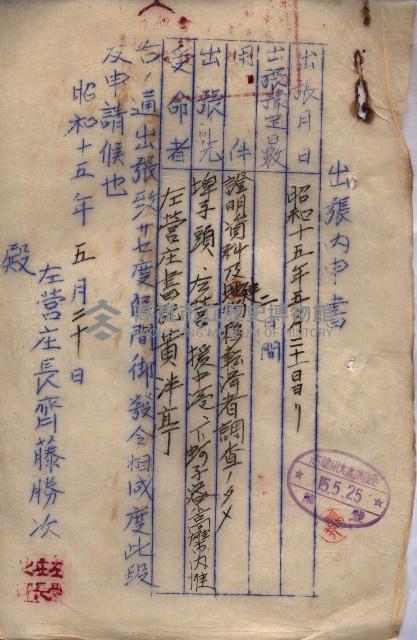 出張內申書
出張月日 昭和十五年五月二十一日ヨリ
出張豫定日數 二日間
用件 證明資料及 移転済者調查ノタメ
出張先 埤子頭、左營、援中港、下蚵子寮、
受命者 左營庄書 黃泮亭
右ノ通出張致サセ度候間御發令相成度此段
及申請候也
昭和十五年五月二十日
左營庄長齊藤勝次
殿
15.5.25